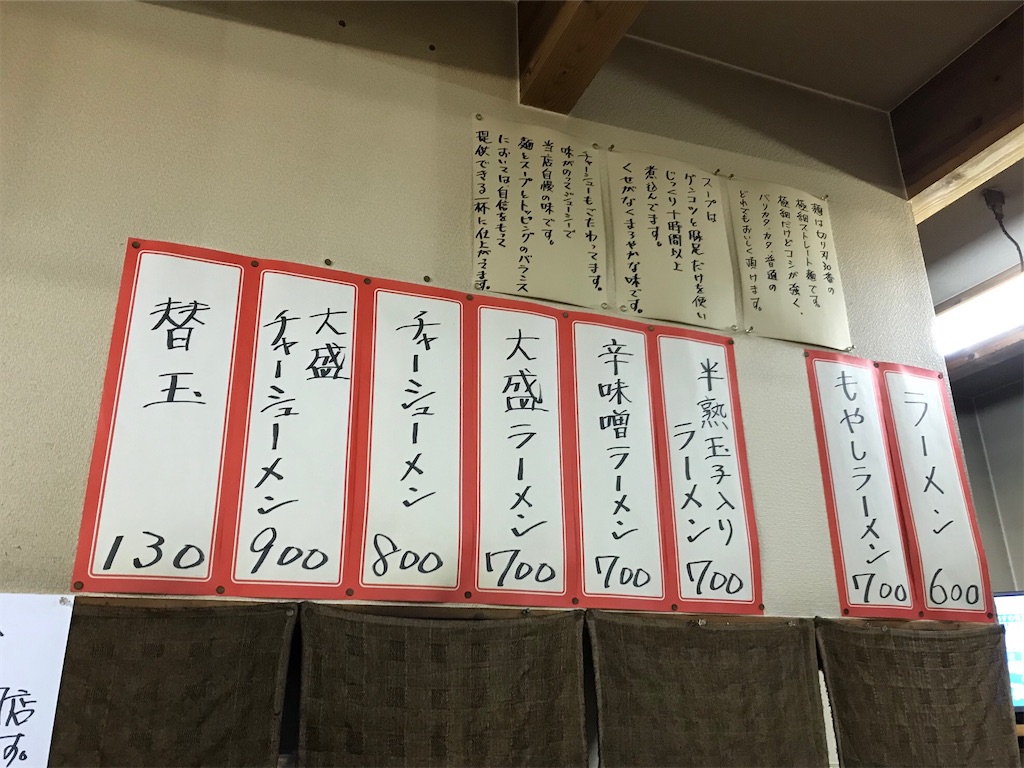 麺は切り刃30番の
極細ストレート麺です。
極細だけどコシが強く、
バリカタ、カタ、普通の
どれでもおいしく頂けます。
スープは
ゲンコツと豚足だけを使い
じっくり十時間以上
煮込んでます。
くせがなくまろやかな味です。
チャーシューもこだわってます。
味がのってジューシーで
当店自慢の味です。
麺とスープとトッピングのバランス
においては自信をもって
提供できる一杯に仕上がってます。
ラーメン
600
もやしラーメン
700
半熟玉子入り
ラーメン
700
辛味噌ラーメン
700
大盛ラーメン
700
チャーシューメン
800
大盛
チャーシューメン
900
替玉
130
店
す。